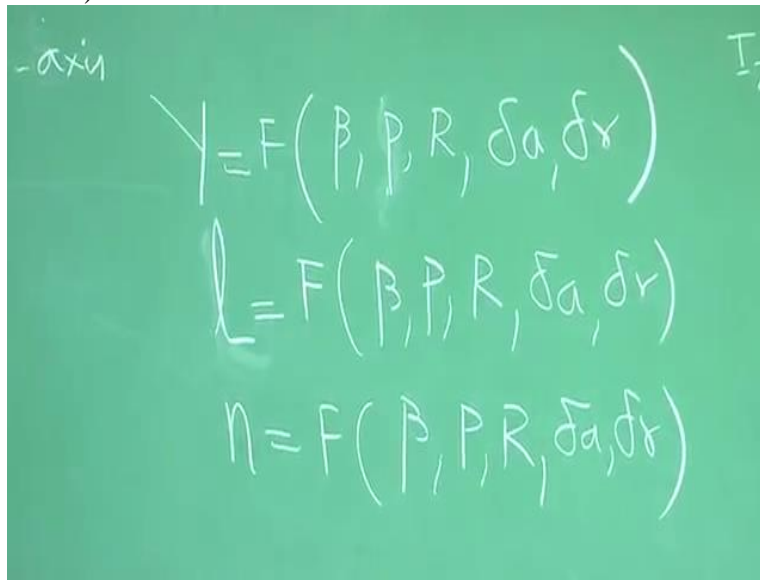 -axis
Y = F(β, P, R, δa, δr)
l = F(β, P, R, δa, δr)
n = F(β, P, R, δa, δr)